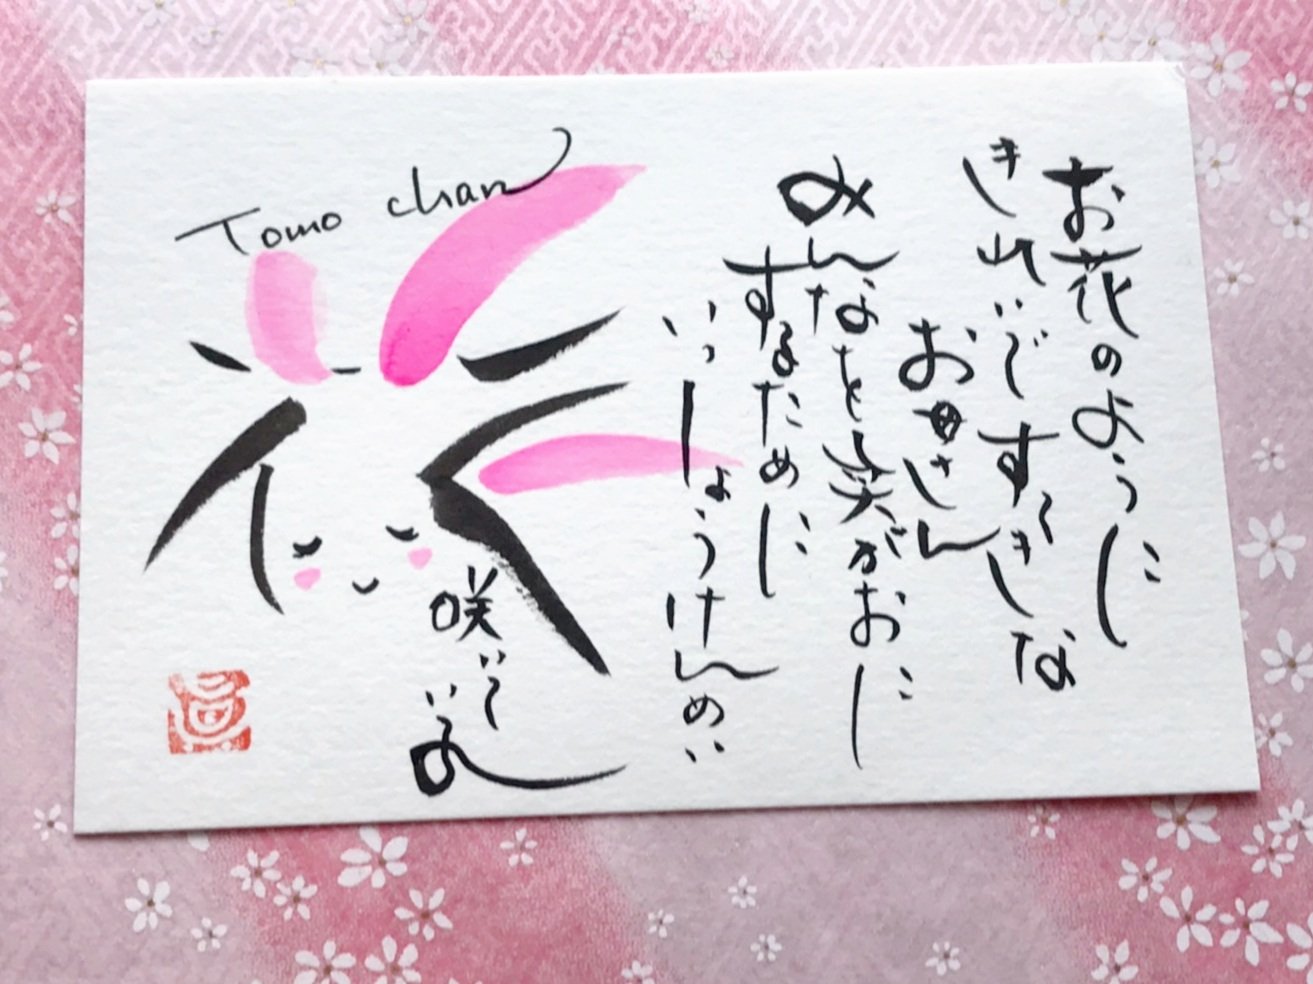 Tomo chan
お花のように
きれいですてきな
お母さん
みんなを笑がおに
するために
いっしょうけんめい
咲いて
いるよ
花